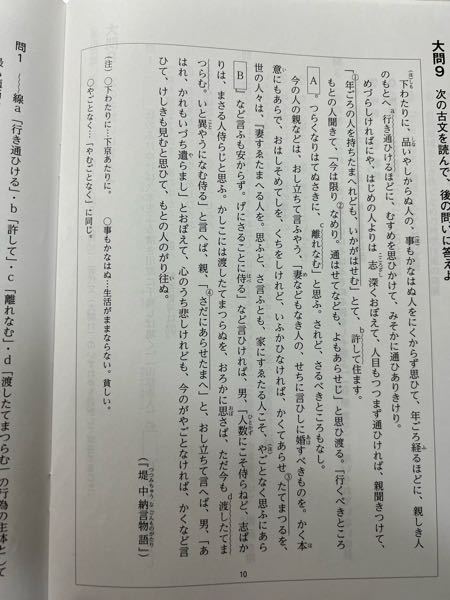 大問9 次の古文を読んで、後の問いに答えよ
下わたりに、品いやしからぬ人の、事もかなはぬ人をにくからず思ひて、年ごろ経るほどに、親しき人
のもとへ行き通ひけるほどに、むすめを思ひかけて、みそかに通ひありきけり。
めづらしければにや、はじめの人よりは志深くおぼえて、人目もつつまず通ひければ、親聞きつけて、
「①年ごろの人を持ちたまへれども、いかがはせむ」とて、b許して住ます。
もとの人聞きて、「今は限り②なめり。通はせてなども、よもあらせじ」と思ひ渡る。「行くべきところ
A。つらくなりはてぬさきに、c離れなむ」と思ふ。されど、さるべきところもなし。
今の人の親などは、おし立ちて言ふやう、「妻などもなき人の、せちに言ひしに婚すべきものを。かく本
意にもあらで、おはしそめてしを、くちをしけれど、いふかひなければ、かくてあらせ③たてまつるを、
世の人々は、『妻すゑたまへる人を。思ふと、さ言ふとも、家にすゑたる人こそ、やごとなく思ふにあら
B』など言ふも安からず。げにさることに侍る」など言ひければ、男、「人数にこそ侍らねど、志ばか
りは、まさる人侍らじと思ふ。かしこには渡したてまつらぬを、おろかに思さば、ただ今もd渡したてま
つらむ。いと異やうになむ侍る」と言へば、親、「④さだにあらせたまへ」と、おし立ちて言へば、男、「あ
はれ、かれもいづち遣らまし」とおぼえて、心のうち悲しけれども、今のがやごとなければ、かくなど言
ひて、けしきも見むと思ひて、もとの人のがり往ぬ。
(『堤中納言物語』)
(注) ○下わたりに…下京あたりに。 ○事もかなはぬ…生活がままならない。貧しい。
○やごとなく…「やむごとなく」に同じ。
問1 線a「行き通ひける」・b「許して」・c「離れなむ」・d「渡したてまつらむ」の行為の主体として
10